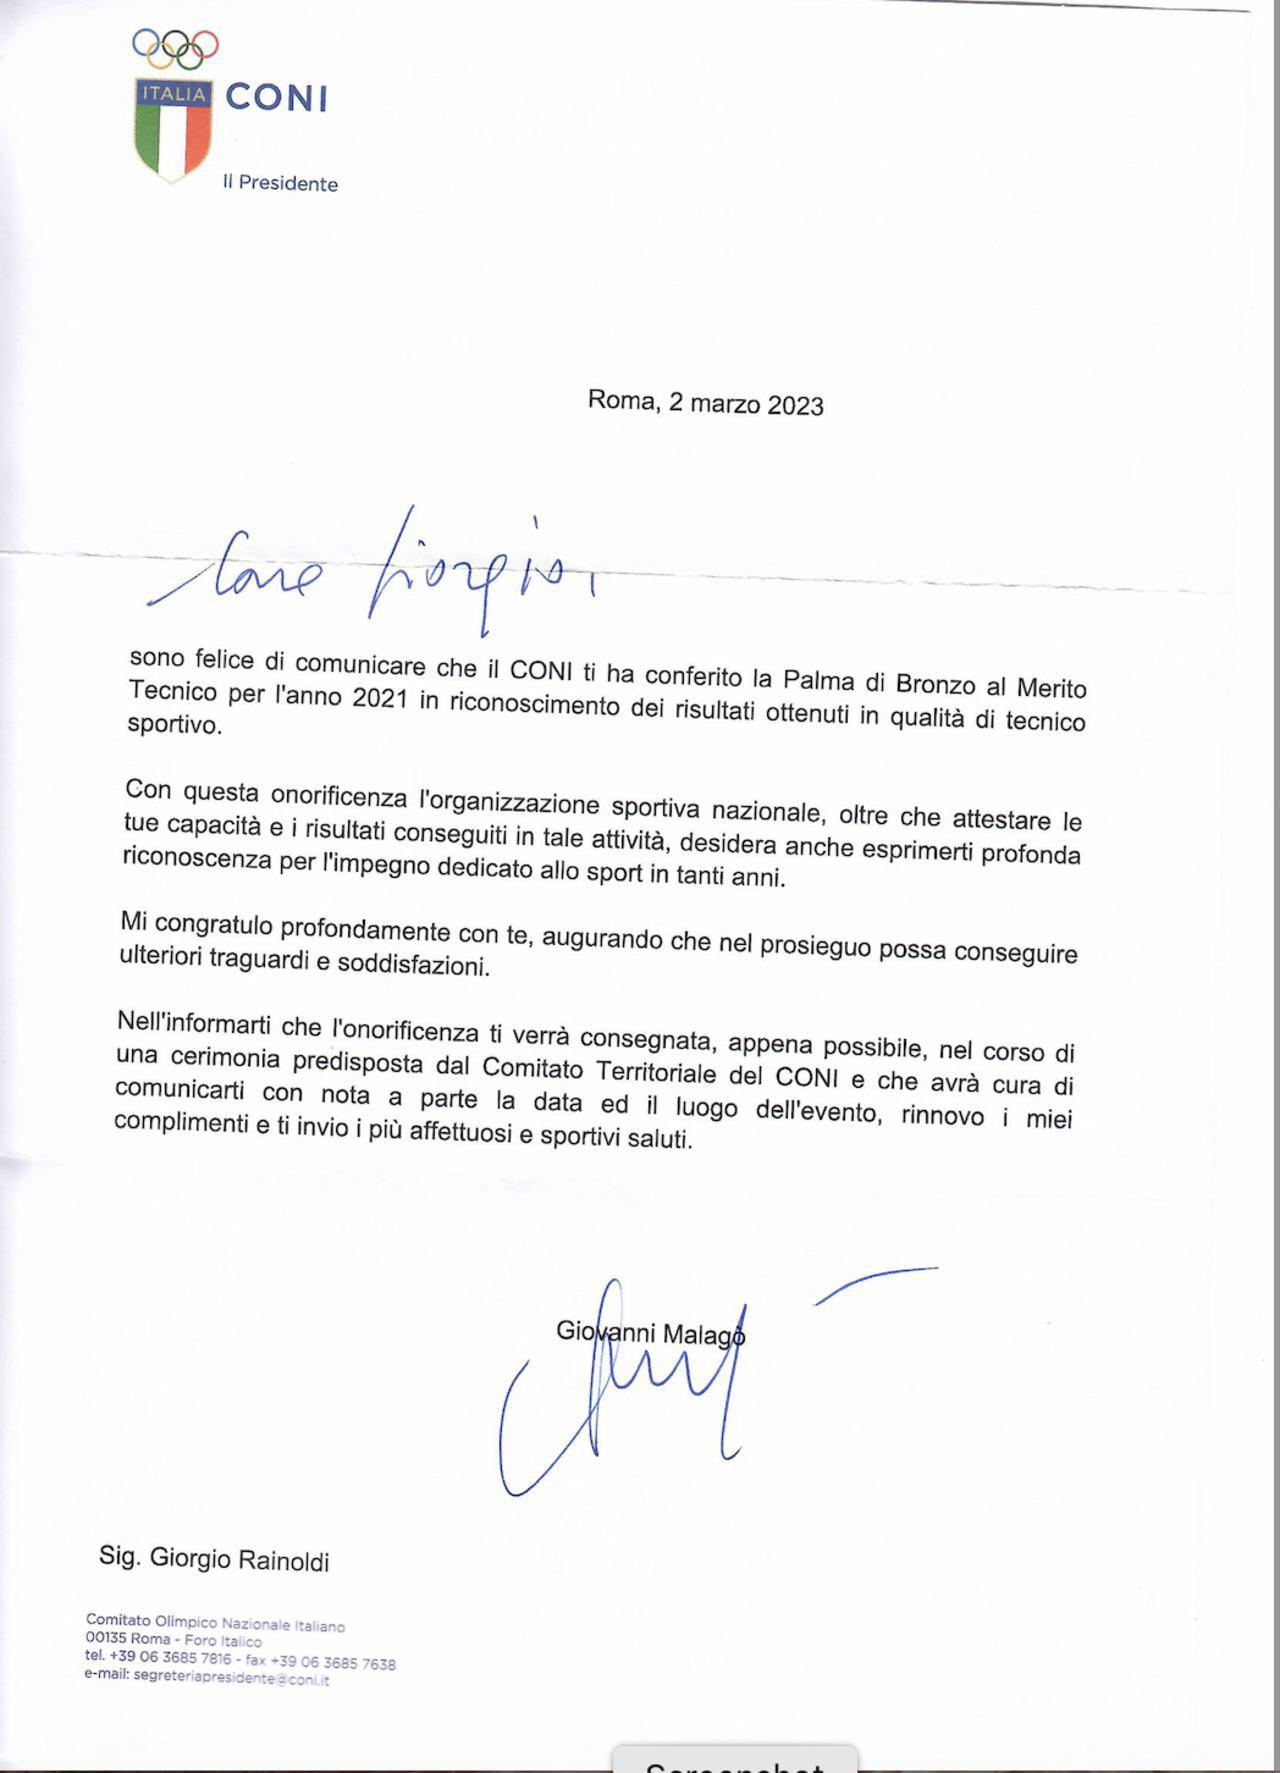 ITALIA
CONI
Il Presidente
Roma, 2 marzo 2023
Caro Giorgio,
sono felice di comunicare che il CONI ti ha conferito la Palma di Bronzo al Merito
Tecnico per l'anno 2021 in riconoscimento dei risultati ottenuti in qualità di tecnico
sportivo.
Con questa onorificenza l'organizzazione sportiva nazionale, oltre che attestare le
tue capacità e i risultati conseguiti in tale attività, desidera anche esprimerti profonda
riconoscenza per l'impegno dedicato allo sport in tanti anni.
Mi congratulo profondamente con te, augurando che nel prosieguo possa conseguire
ulteriori traguardi e soddisfazioni.
Nell'informarti che l'onorificenza ti verrà consegnata, appena possibile, nel corso di
una cerimonia predisposta dal Comitato Territoriale del CONI e che avrà cura di
comunicarti con nota a parte la data ed il luogo dell'evento, rinnovo i miei
complimenti e ti invio i più affettuosi e sportivi saluti.
Giovanni Malagò
Sig. Giorgio Rainoldi
Comitato Olimpico Nazionale Italiano
00135 Roma - Foro Italico
tel. +39 06 3685 7816 - fax +39 06 3685 7638
e-mail: segreteriapresidente@coni.it
Screenshot